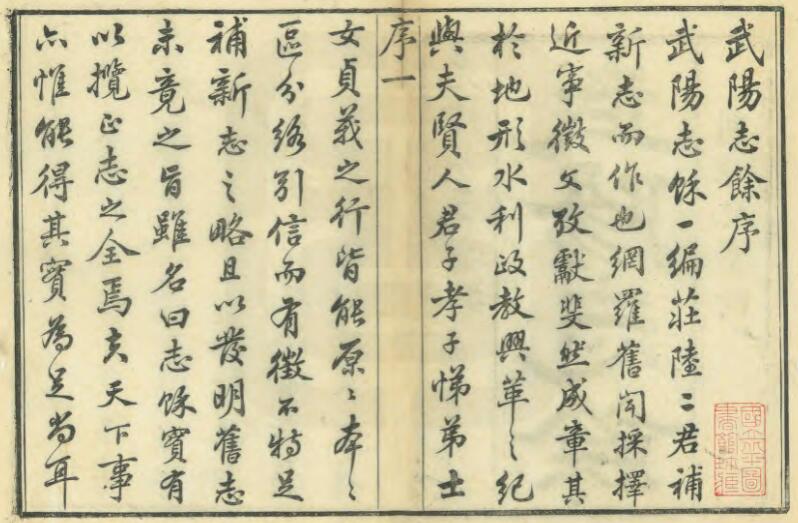 武陽志餘序
武陽志餘一編莊陸二君補
新志而作也網羅舊聞採擇
近事徵文攷獻斐然成章其
於地形水利政教興革之紀
與夫賢人君子孝子悌弟士
序一
女貞義之行皆能原〻本〻
區分條引信而有徵不特足
補新志之略且以發明舊志
未竟之旨雖名曰志餘實有
以攬正志之全焉夫天下事
亦惟能得其實為足尚耳